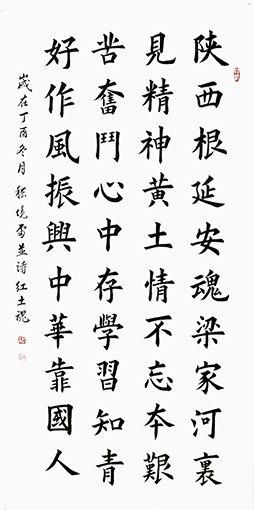 陝西根延安魂梁家河裏
見精神黃土情不忘本艱
苦奮鬥心中存學習知青
好作風振興中華靠國人
歲在丁酉冬月 曉雪並詩紅土魂